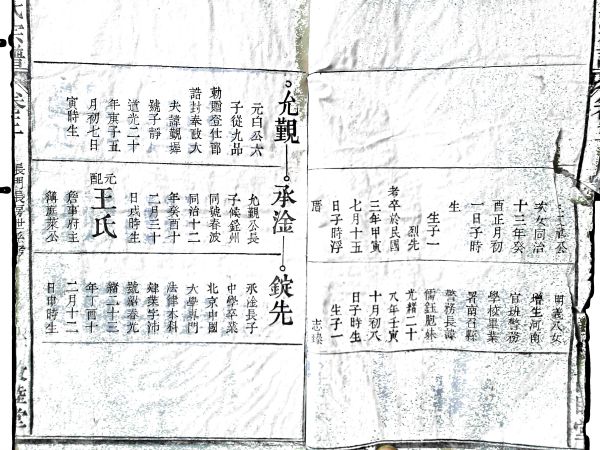 允觀
承淦
錠先
元白公六
子從九品
勅爾登仕郎
誥封奉政大
夫諱觀
號子靜
道光二十
年庚子五
月初七日
寅時生
允觀公長
子候銓州
同號春波
同治十二
年癸酉十
二月三十
日戌時生
元配
王氏
詹事府主
承淦長子
中學卒業
北京中國
大學專門
法律本科
肄業字沛
號紹春光
緒二十三
年丁酉十
二月十二
日申時生
次女同治
十三年癸
酉正月初
一日子時
生
生子一
烈先
老卒於民國
三年甲寅
七月十五
日子時浮
厝
明義公女
增生河南
官班警務
學校畢業
署南召縣
警務長諱
儒鈺胞妹
光緒二十
八年壬寅
十月初八
日子時生
生子一
志
氏宗譜
長門長房世系
敦睦堂